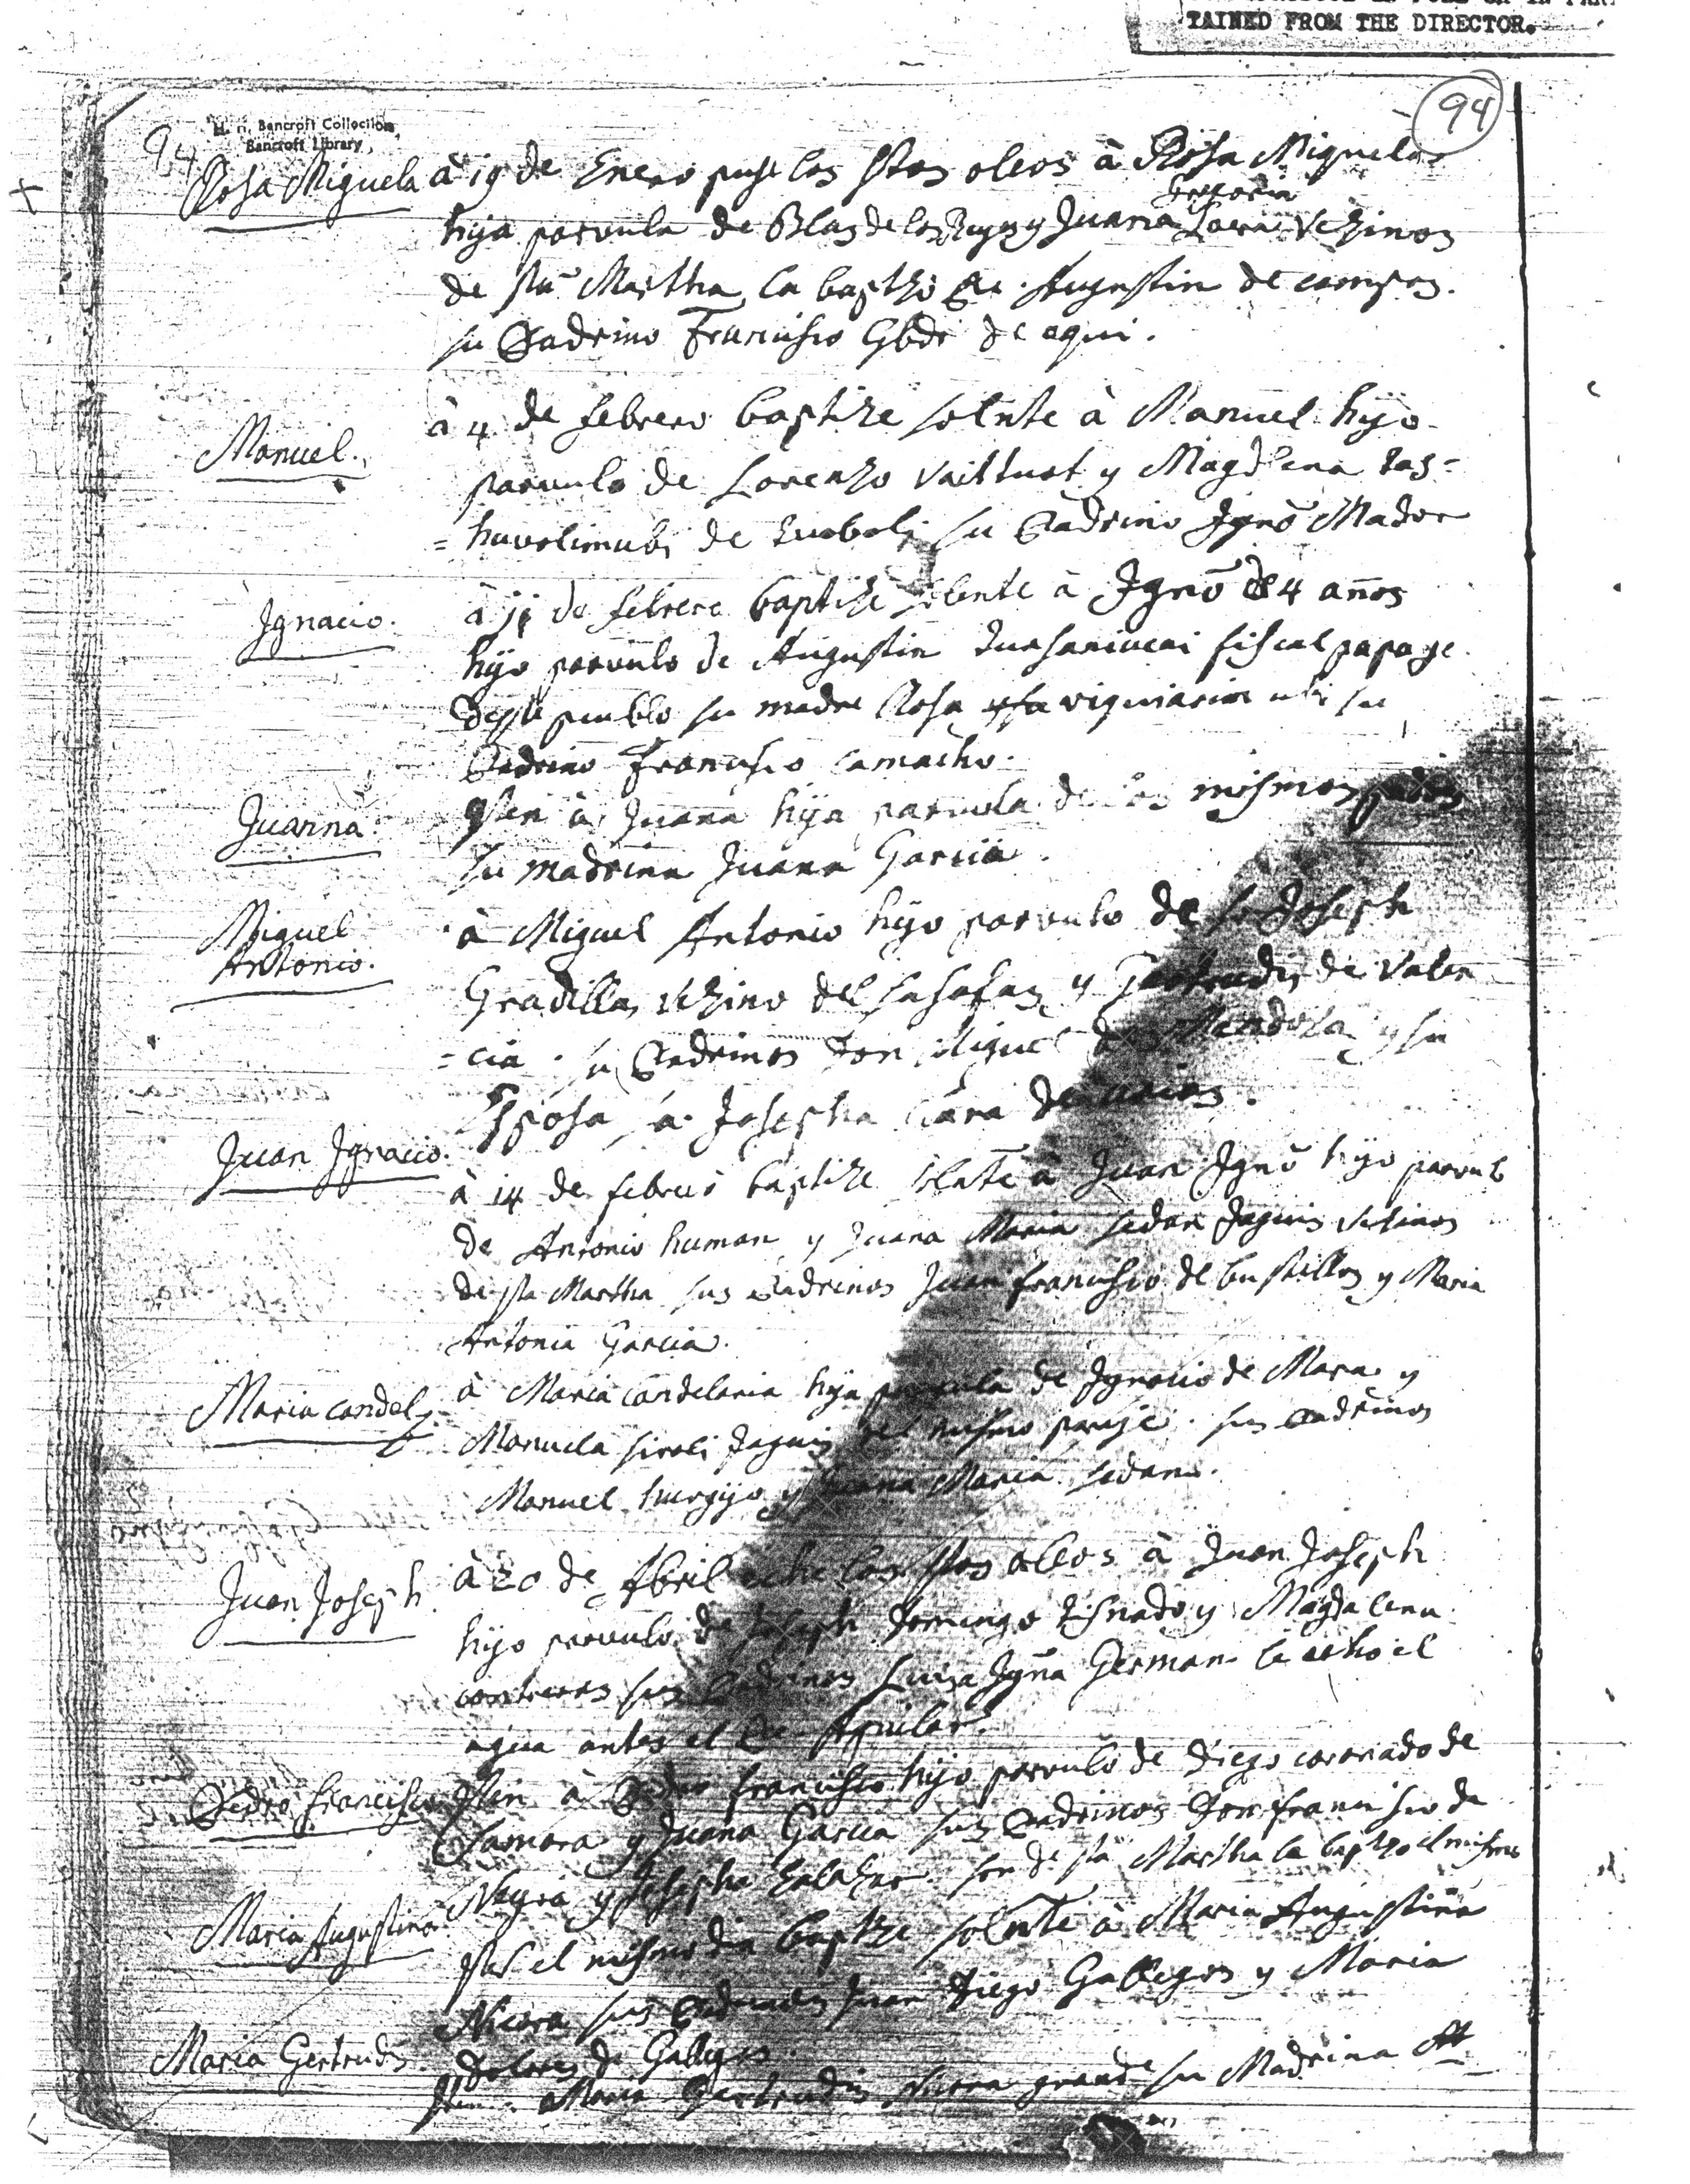 TAINED FROM THE DIRECTOR.
94
H. H. Bancroft Collection,
Bancroft Library,
94
Rosa Miguela
à 19 de Enero puse los stos oleos à Rosa Miguela
Gregoria
hija parvula de Blas de los Reyes y Juana Vezinos
de sta Martha, la baptizò Pe. Augustin de campos.
su Padrino Francisco de aqui.
Manuel.
à 4 de febrero baptize solnte à Manuel hijo
parvulo de Lorenzo y Magdlena tas=
= de su Padrino Ignõ
Ignacio.
à 11 de febrero baptize solente à Ignõ de 4 años
hijo parvulo de Augustin fiscal papago
deste pueblo su madre Rosa su
Padrino Francisco Camacho.
Juanna.
Iten à Juana hija parvula de los mismos padres
su madrina Juana Garcia.
Miguel
Antonio.
à Miguel Antonio hijo parvulo de Joseph
Gradillas vezino del y Gertrudis de Valen
= cia. su Padrinos Don Miguel de Mendoza y su
Esposa Josepha
Juan Ignacio.
à 14 de febrero baptize solnte à Juan Ignõ hijo parvulo
de Antonio human y Juana Maria sedan Jaquis vezinos
de sta Martha sus Padrinos Juan Francisco de bustillos y Maria
Antonia Garcia.
Maria candel.
à Maria candelaria hija parvula de Ignacio de Mara y
Manuela siroli Jaquis del mismo paraje. sus Padrinos
Manuel y Juana Maria sedan.
Juan Joseph.
à 20 de Abril eche los stos oleos à Juan Joseph
hijo parvulo de Joseph Domingo tisnado y Magdalena
contreras sus Padrinos Luiza Ignã German le echo el
agua antes el Pe Aguilar.
Pedro Francisco
Iten à Pedro Francisco hijo parvulo de Diego coronado de
Samora y Juana Garcia sus Padrinos Don Francisco de
Neyra y Josepha son de sta Martha le baptzo el mismo
Maria Augustina
Iten el mismo dia baptze solnte à Maria Augustina
Nicora sus Padrinos Juan Diego Gallegos y Maria
Dolores de Gallegos.
Maria Gertrudis.
Iten Maria Gertrudis grande su Madrina